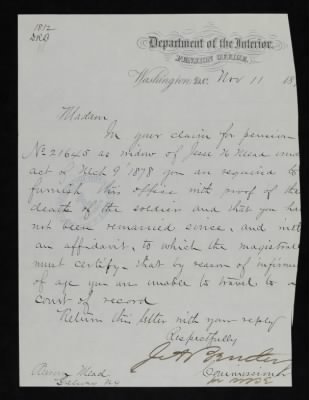 1812
DRB
Department of the Interior,
PENSION OFFICE,
Washington, D.C. Nov 11 18
Madam
In your claim for pension
No 21645 as widow of Jesse H Mead under
act of Mch 9" 1878 you are required to
furnish this office with proof of the
death of the soldier and that you have
not been remarried since, and with
an affidavit, to which the magistrate
must certify that by reason of infirmities
of age you are unable to travel to a
Court of record
Return this letter with your reply
Respectfully
J A Bentley
Commissioner
Mead
NY